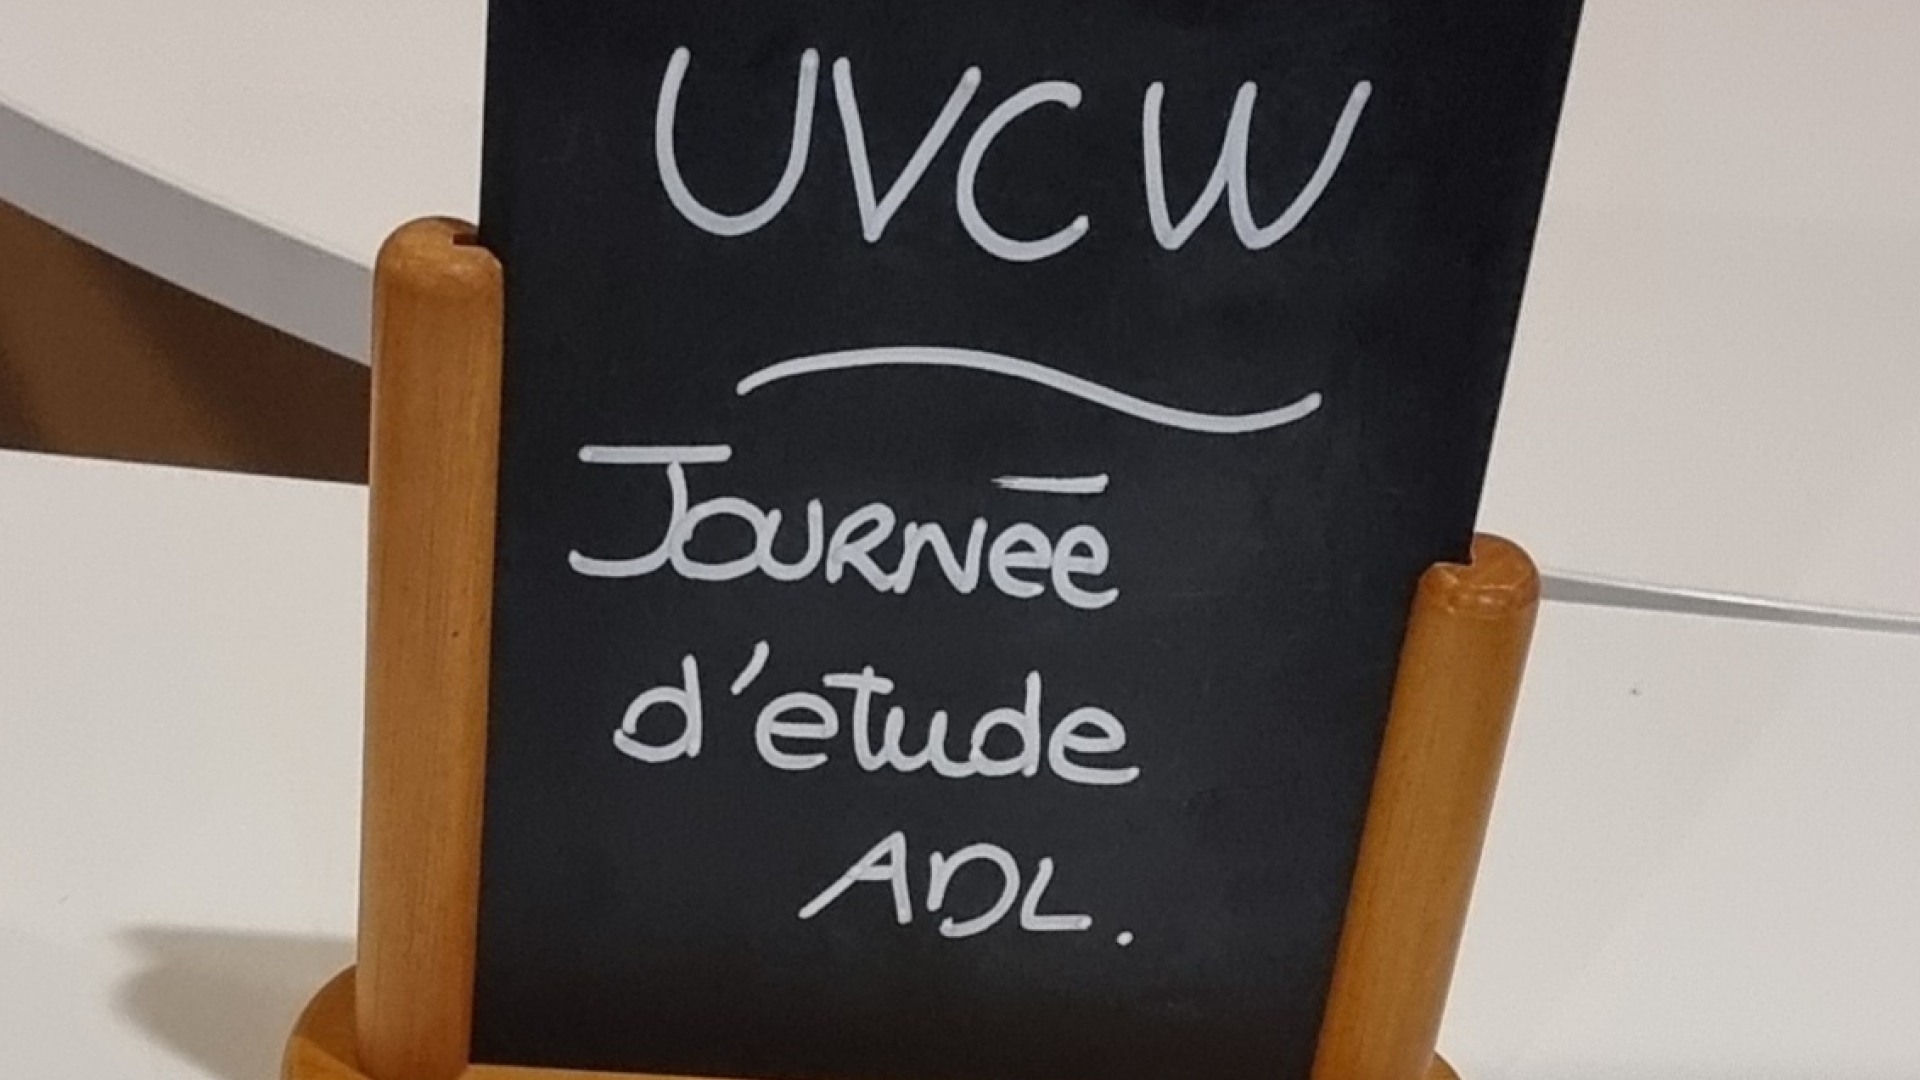 UVCW
Journée
d'etude
ADL.